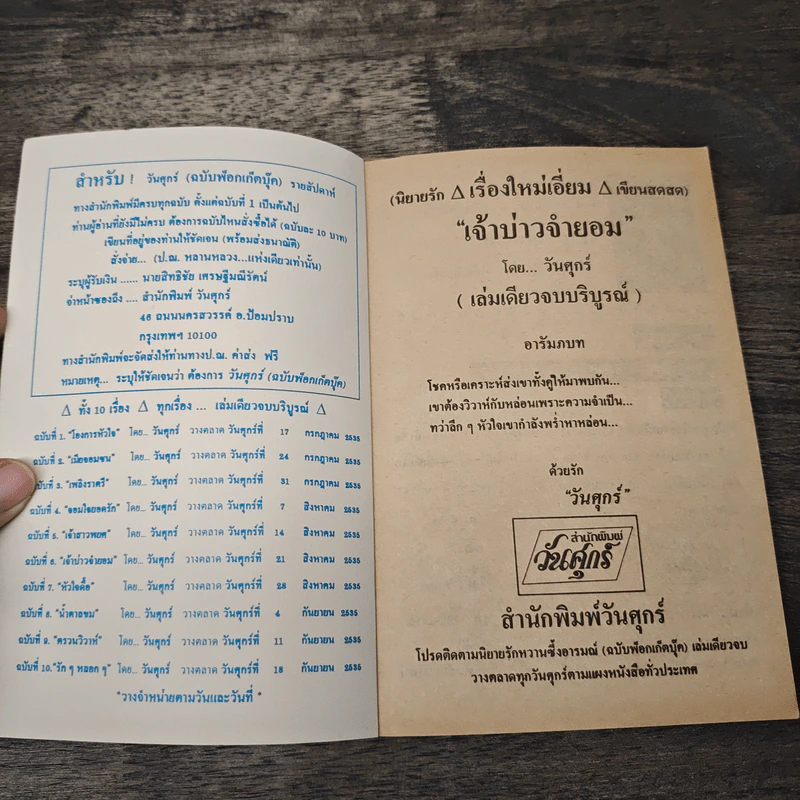 สำหรับ ! วันศุกร์ (ฉบับพ็อกเก็ตบุ๊ค) รายสัปดาห์
ทางสำนักพิมพ์มีครบทุกฉบับ ตั้งแต่ฉบับที่ 1 เป็นต้นไป
ท่านผู้อ่านที่ยังมีไม่ครบ ต้องการฉบับไหนสั่งซื้อได้ (ฉบับละ 10 บาท)
เขียนที่อยู่ของท่านให้ชัดเจน (พร้อมส่งธนาณัติ)
สั่งจ่าย... (ป.ณ. หลานหลวง...แห่งเดียวเท่านั้น)
ระบุผู้รับเงิน ...... นายสิทธิชัย เศรษฐีมณีรัตน์
จ่าหน้าซองถึง .... สำนักพิมพ์ วันศุกร์
46 ถนนนครสวรรค์ อ.ป้อมปราบ
กรุงเทพฯ 10100
ทางสำนักพิมพ์จะจัดส่งให้ท่านทางป.ณ. ค่าส่ง ฟรี
หมายเหตุ... ระบุให้ชัดเจนว่า ต้องการ วันศุกร์ (ฉบับพ็อกเก็ตบุ๊ค)
Δ ทั้ง 10 เรื่อง Δ ทุกเรื่อง ... เล่มเดียวจบบริบูรณ์ Δ
ฉบับที่ 1. "โองการหัวใจ" โดย... วันศุกร์ วางตลาด วันศุกร์ที่ 17 กรกฎาคม 2535
ฉบับที่ 2. "เมียจอมซน" โดย... วันศุกร์ วางตลาด วันศุกร์ที่ 24 กรกฎาคม 2535
ฉบับที่ 3. "เพลิงราตรี" โดย... วันศุกร์ วางตลาด วันศุกร์ที่ 31 กรกฎาคม 2535
ฉบับที่ 4. "จอมใจยอดรัก" โดย... วันศุกร์ วางตลาด วันศุกร์ที่ 7 สิงหาคม 2535
ฉบับที่ 5. "เจ้าสาวพยศ" โดย... วันศุกร์ วางตลาด วันศุกร์ที่ 14 สิงหาคม 2535
ฉบับที่ 6. "เจ้าบ่าวจำยอม" โดย... วันศุกร์ วางตลาด วันศุกร์ที่ 21 สิงหาคม 2535
ฉบับที่ 7. "หัวใจดื้อ" โดย... วันศุกร์ วางตลาด วันศุกร์ที่ 28 สิงหาคม 2535
ฉบับที่ 8. "น้ำตาลขม" โดย... วันศุกร์ วางตลาด วันศุกร์ที่ 4 กันยายน 2535
ฉบับที่ 9. "ตรวนวิวาห์" โดย... วันศุกร์ วางตลาด วันศุกร์ที่ 11 กันยายน 2535
ฉบับที่ 10. "รัก ๆ หลอก ๆ" โดย... วันศุกร์ วางตลาด วันศุกร์ที่ 18 กันยายน 2535
"วางจำหน่ายตามวันและวันที่ "
(นิยายรัก Δ เรื่องใหม่เอี่ยม Δ เขียนสดสด)
"เจ้าบ่าวจำยอม"
โดย... วันศุกร์
( เล่มเดียวจบบริบูรณ์ )
อารัมภบท
โชคหรือเคราะห์ส่งเขาทั้งคู่ให้มาพบกัน...
เขาต้องวิวาห์กับหล่อนเพราะความจำเป็น...
ทว่าลึก ๆ หัวใจเขากำลังพร่ำหาหล่อน...
ด้วยรัก
"วันศุกร์"
สำนักพิมพ์
วันศุกร์
สำนักพิมพ์วันศุกร์
โปรดติดตามนิยายรักหวานซึ้งอารมณ์ (ฉบับพ็อกเก็ตบุ๊ค) เล่มเดียวจบ
วางตลาดทุกวันศุกร์ตามแผงหนังสือทั่วประเทศ